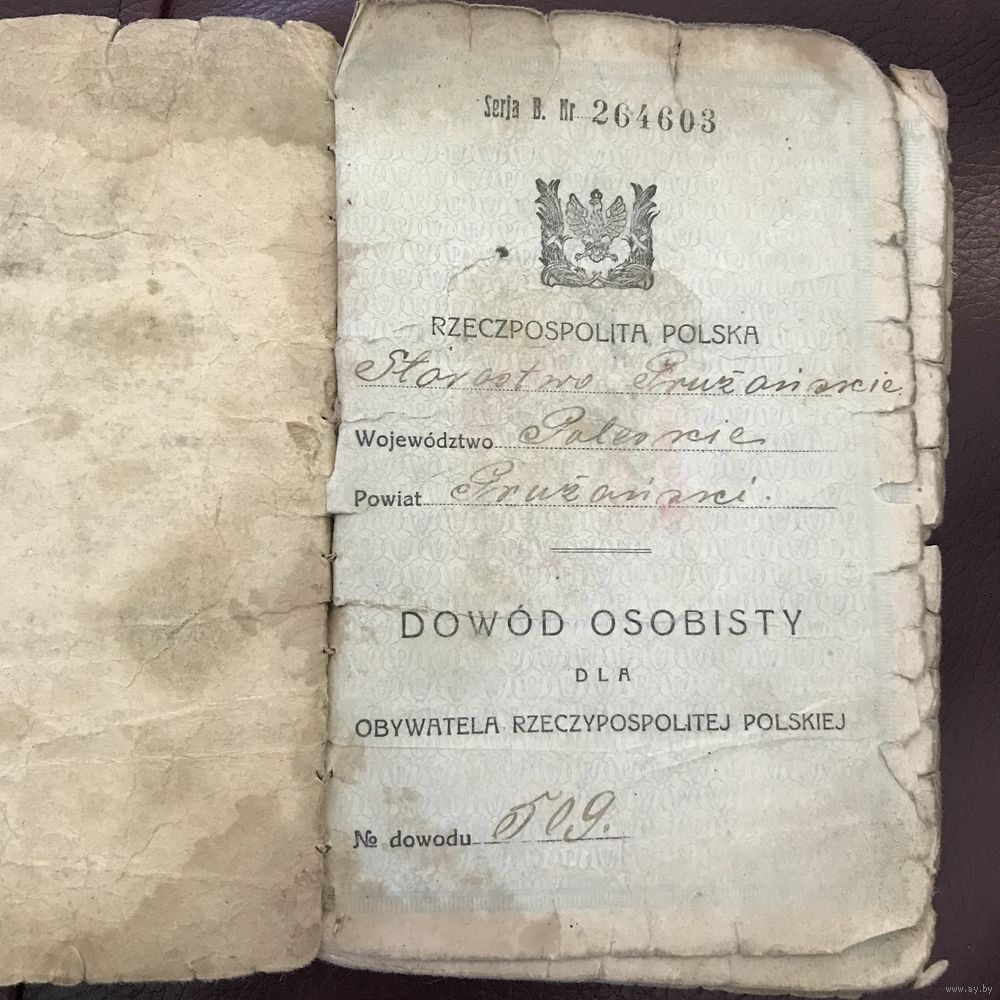 Serja B. Nr 264603
RZECZPOSPOLITA POLSKA
Starostwo Prużańskie
Województwo Poleskie
Powiat Prużański.
DOWÓD OSOBISTY
DLA
OBYWATELA RZECZYPOSPOLITEJ POLSKIEJ
№ dowodu 509.
www.ay.by